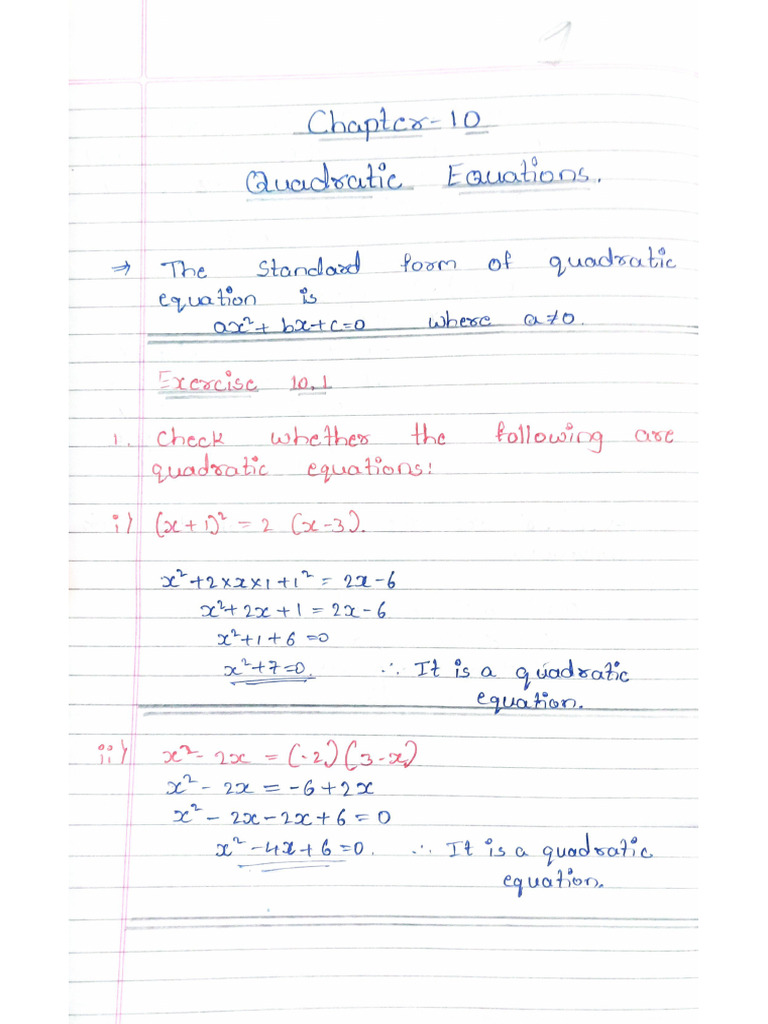 1
Chapter-10
Quadratic Equations.
⇒ The standard form of quadratic
equation is
ax²+ bx+c=0 where a≠0.
Exercise 10.1
1. Check whether the following are
quadratic equations:
i) (x+1)² = 2 (x-3).
x²+2×x×1+1² = 2x-6
x²+2x+1 = 2x-6
x²+1+6=0
x²+7=0. ∴ It is a quadratic
equation.
ii) x²-2x = (-2)(3-x)
x²-2x = -6+2x
x²-2x-2x+6=0
x²-4x+6=0. ∴ It is a quadratic
equation.